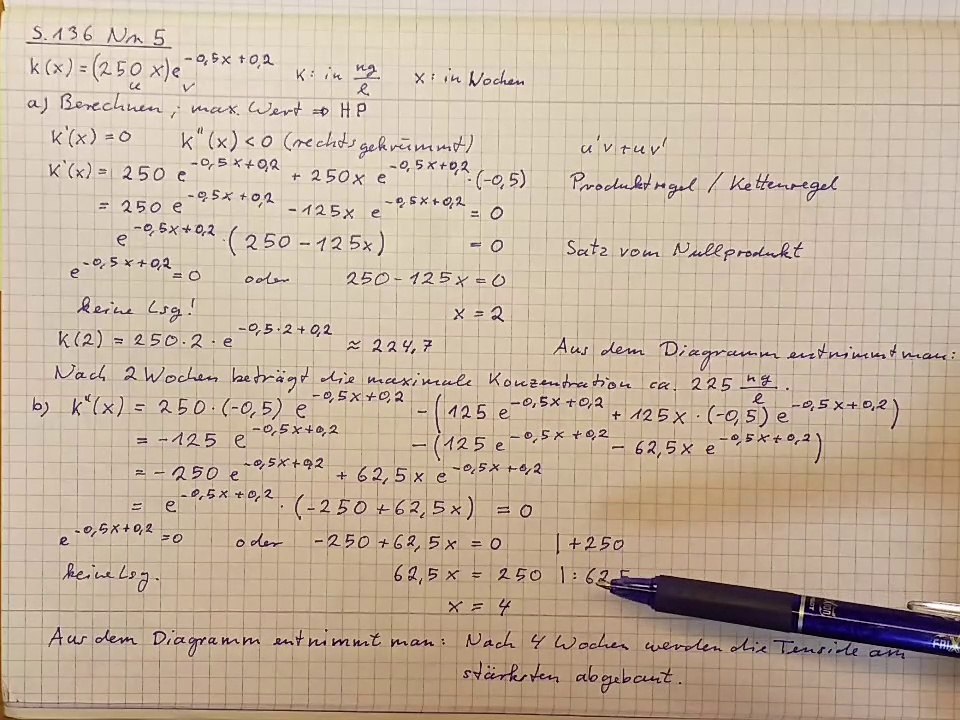 S. 136 Nr. 5
k(x) = (250 x)e^(-0,5x+0,2)   K: in ng/l   x: in Wochen
u v
a) Berechnen ; max. Wert ⇒ HP
k'(x) = 0   k''(x) < 0 (rechtsgekrümmt)   u'v + uv'
k'(x) = 250 e^(-0,5x+0,2) + 250x e^(-0,5x+0,2) · (-0,5)   Produktregel / Kettenregel
= 250 e^(-0,5x+0,2) - 125x e^(-0,5x+0,2) = 0
e^(-0,5x+0,2) · (250 - 125x) = 0   Satz vom Nullprodukt
e^(-0,5x+0,2) = 0   oder   250 - 125x = 0
keine Lsg!   x = 2
k(2) = 250 · 2 · e^(-0,5·2+0,2) ≈ 224,7   Aus dem Diagramm entnimmt man:
Nach 2 Wochen beträgt die maximale Konzentration ca. 225 ng/l.
b) k''(x) = 250 · (-0,5) e^(-0,5x+0,2) - (125 e^(-0,5x+0,2) + 125x · (-0,5) e^(-0,5x+0,2))
= -125 e^(-0,5x+0,2) - (125 e^(-0,5x+0,2) - 62,5x e^(-0,5x+0,2))
= -250 e^(-0,5x+0,2) + 62,5x e^(-0,5x+0,2)
= e^(-0,5x+0,2) · (-250 + 62,5x) = 0
e^(-0,5x+0,2) = 0   oder   -250 + 62,5x = 0   | +250
keine Lsg.   62,5x = 250   | : 62,5
x = 4
Aus dem Diagramm entnimmt man: Nach 4 Wochen werden die Tenside am
stärksten abgebaut.